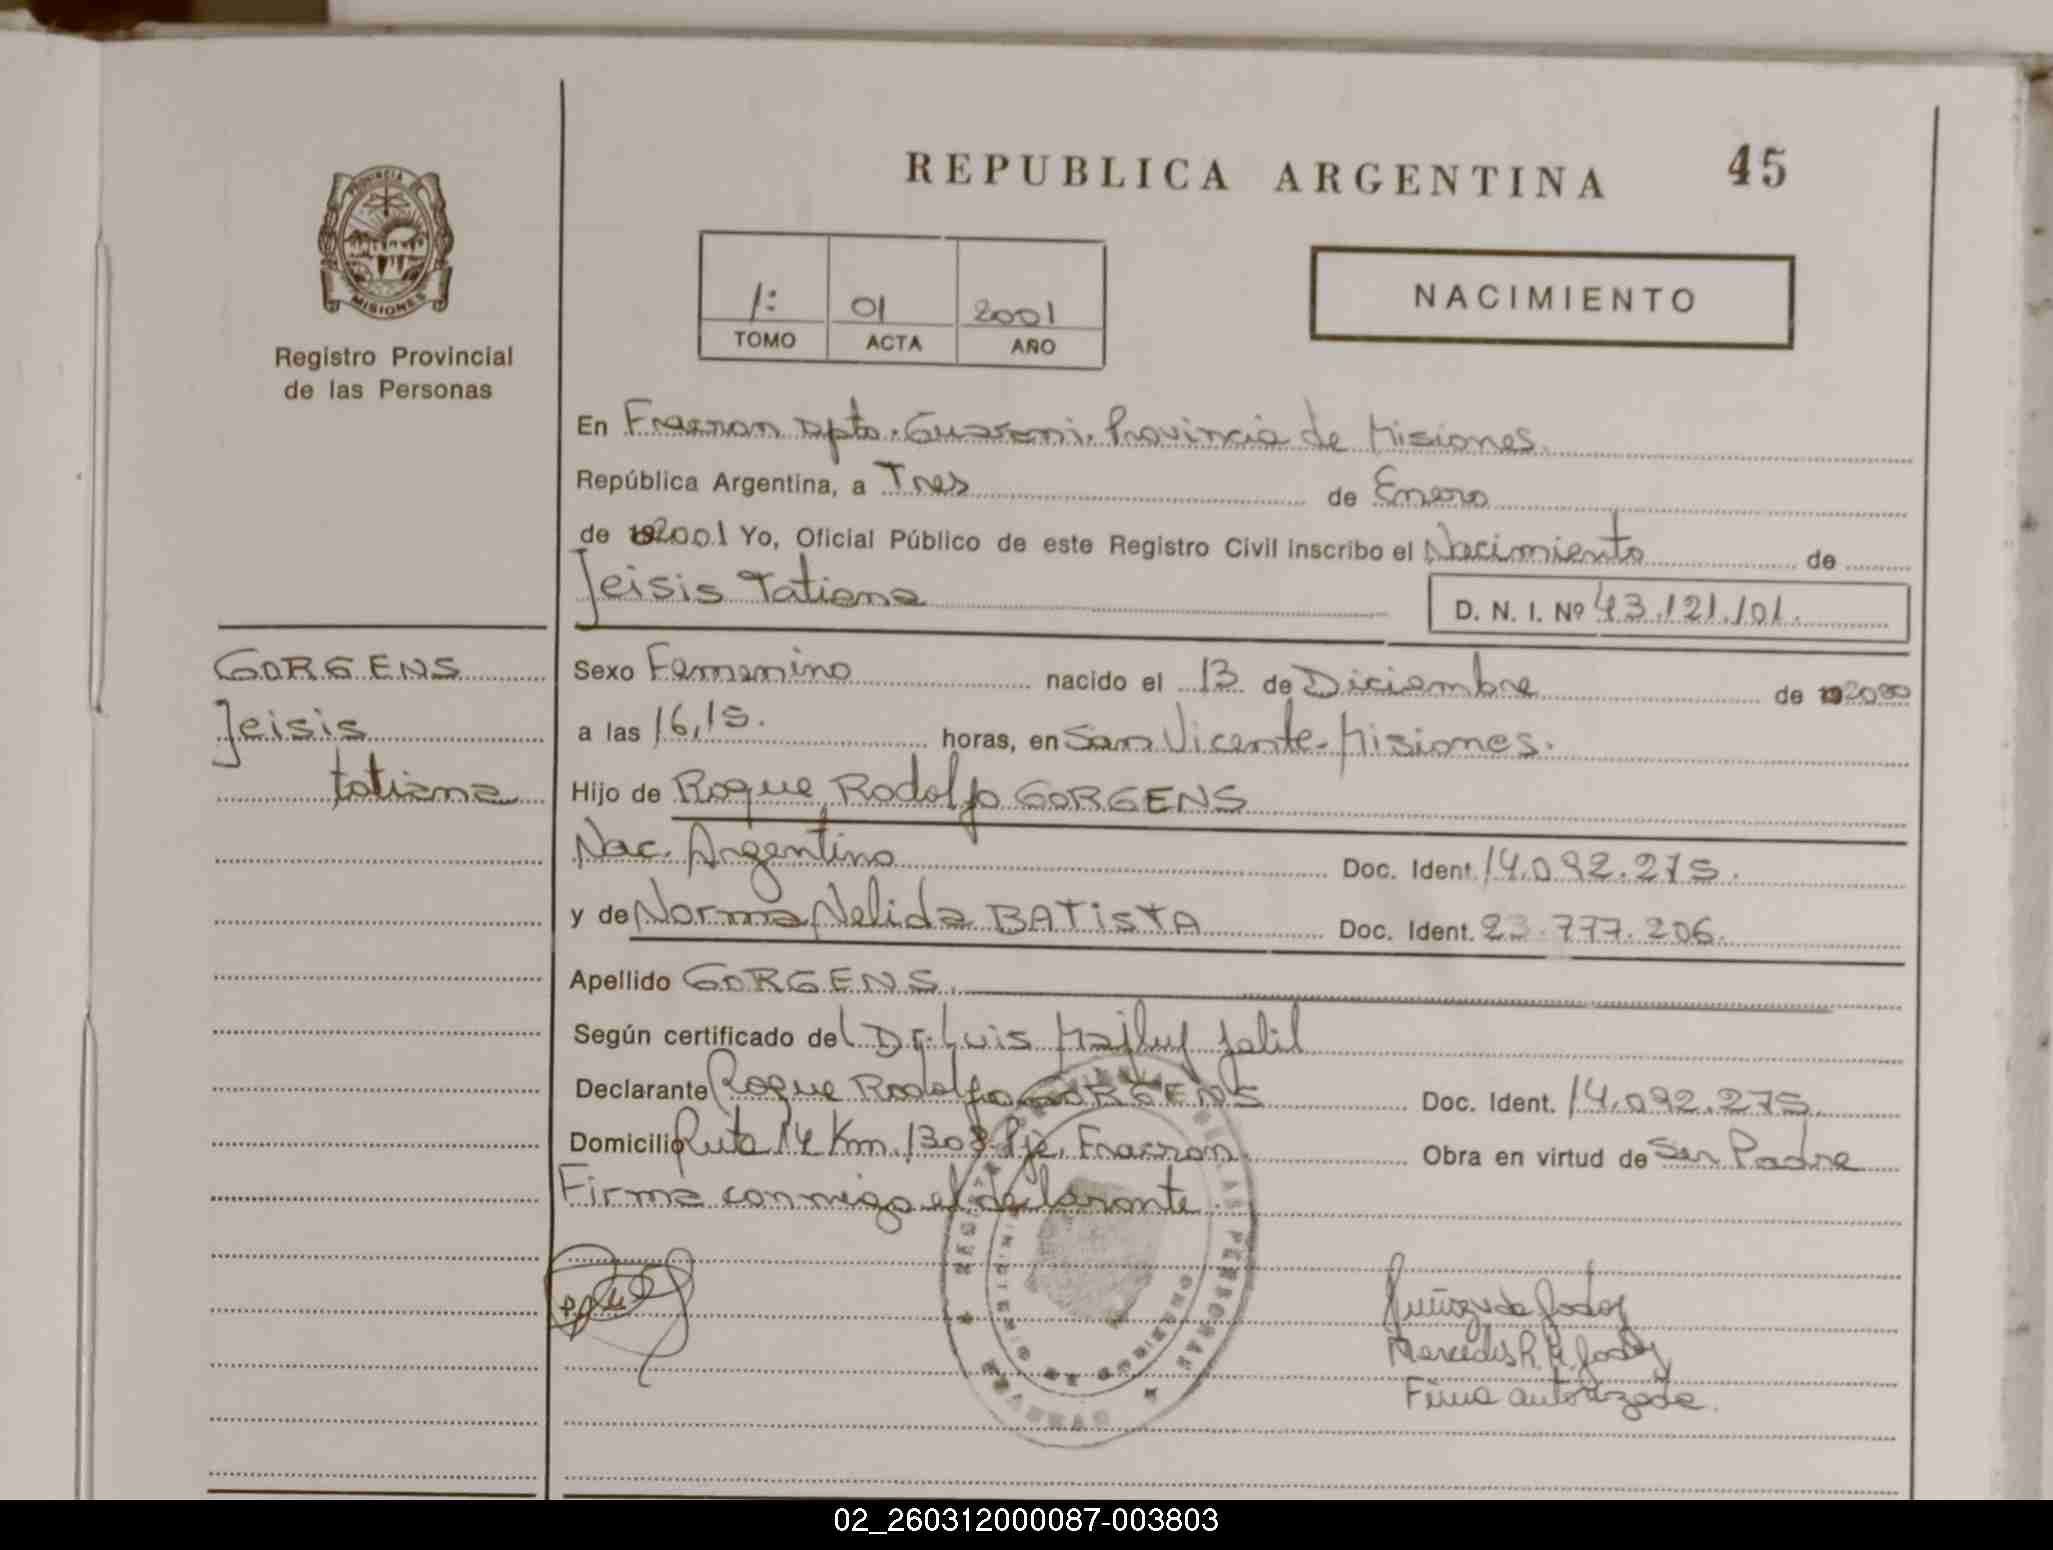 REPUBLICA ARGENTINA 45
PROVINCIA DE
MISIONES
Registro Provincial
de las Personas
1: 01 2001
TOMO ACTA AÑO
NACIMIENTO
En Fracran Dpto. Guarani. Provincia de Misiones.
República Argentina, a Tres de Enero
de 2001 Yo, Oficial Público de este Registro Civil inscribo el Nacimiento de
Jeisis Tatiana
D. N. I. Nº 43.121.101.
GORGENS
Jeisis
tatiana
Sexo Femenino nacido el 13 de Diciembre de 2000
a las 16,15. horas, en San Vicente-Misiones.
Hijo de Roque Rodolfo GORGENS
Nac. Argentino Doc. Ident. 14.092.275.
y de Norma Nelida BATISTA Doc. Ident. 23.777.206.
Apellido GORGENS.
Según certificado del Dr. Luis Jalil
Declarante Roque Rodolfo GORGENS Doc. Ident. 14.092.275.
Domicilio Ruta 14 Km. 1303 Pje. Fracran. Obra en virtud de Ser Padre
Firma conmigo el declarante.
REGISTRO PROVINCIAL DE LAS PERSONAS
MINISTERIO DE GOBIERNO
Muñoz de Godoy
Mercedes R. M. Godoy
Firma autorizada.
02_260312000087-003803